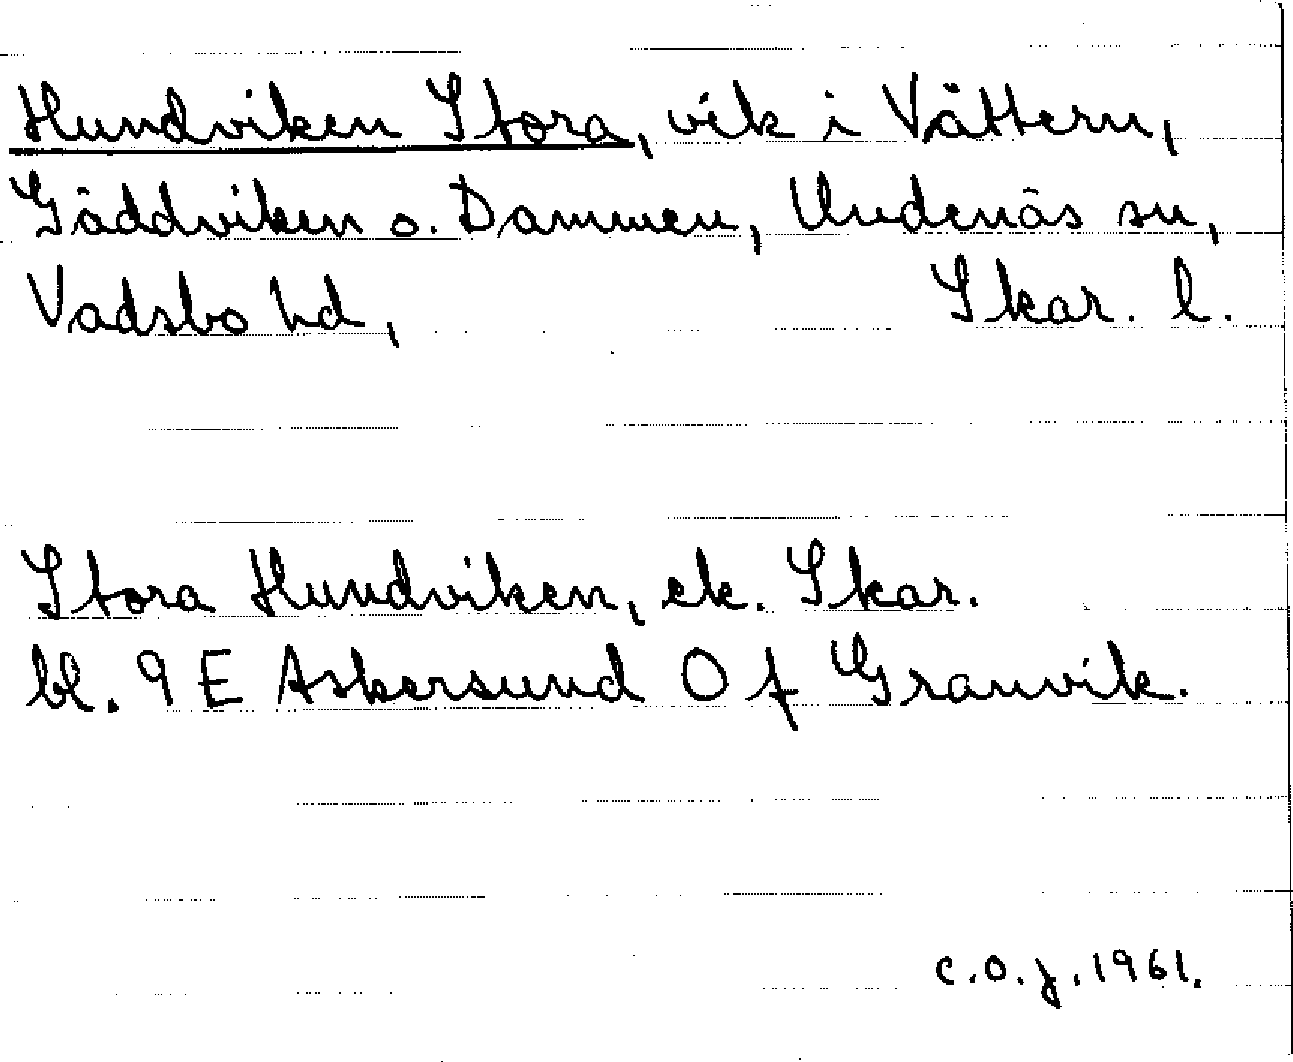 Hundviken Stora, vik i Vättern,
Gäddviken o. Dammen, Undenäs sn,
Vadsbo hd, Skar. l.
Stora Hundviken, ek. Skar.
bl. 9 E Askersund 0 f Granvik.
c.o.j. 1961.